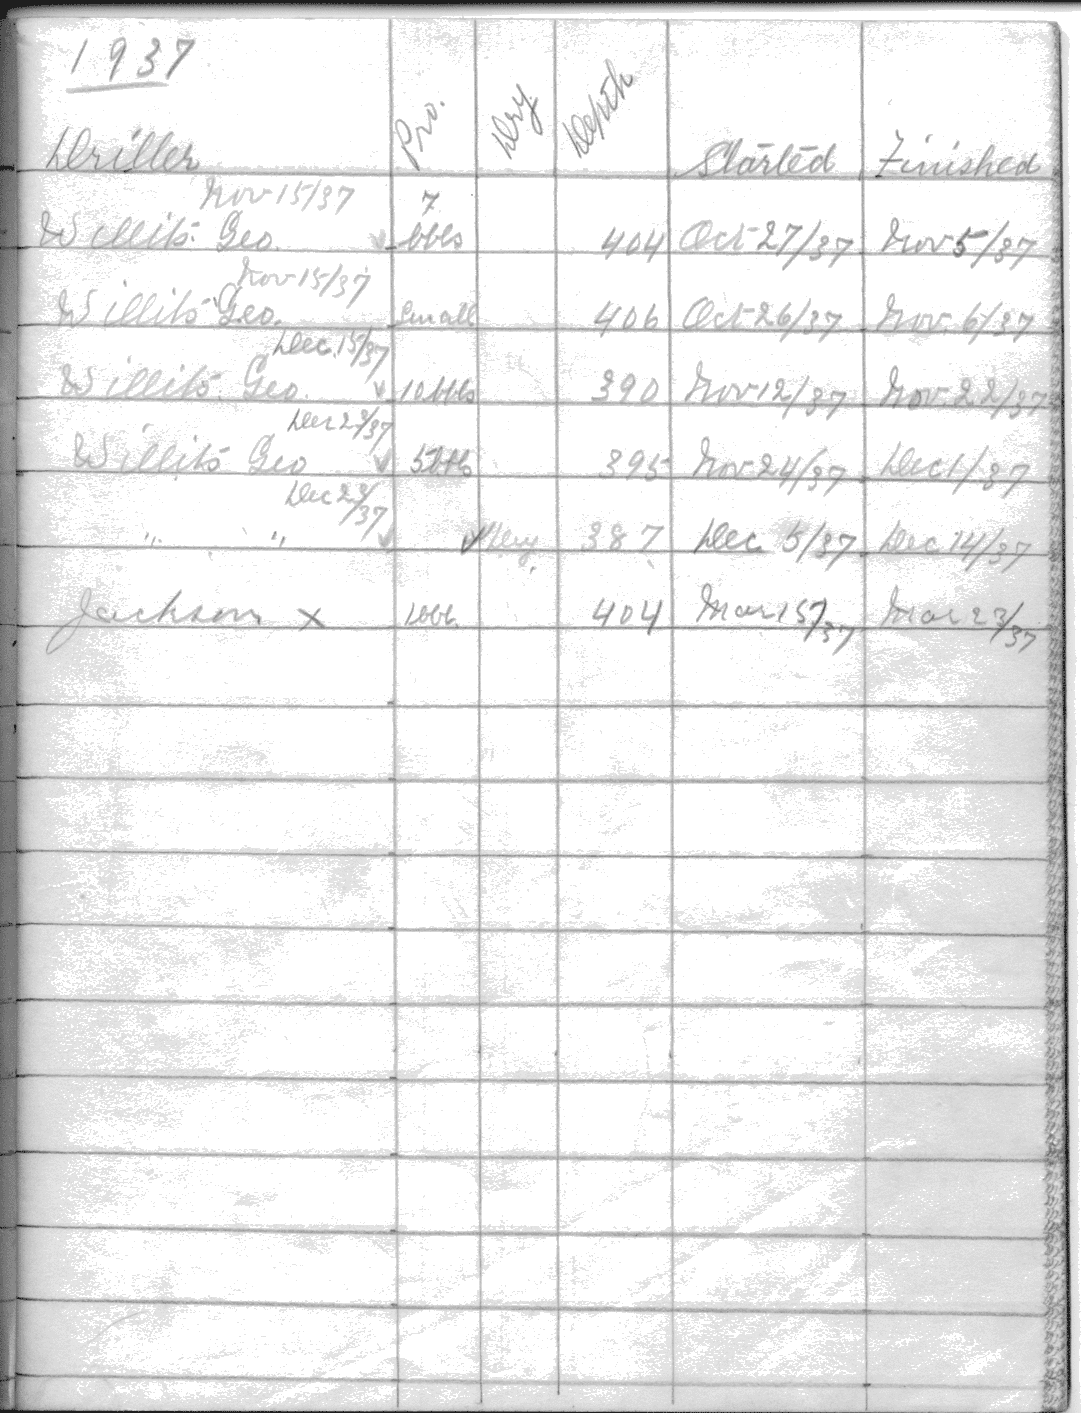 1937
Driller Pro. Dry Depth Started Finished
Nov 15/37 7
Willits Geo. ✓ bbls 404 Oct 27/37 Nov 5/37
Nov 15/37
Willits Geo. Small 406 Oct 26/37 Nov. 6/37
Dec. 15/37
Willits Geo. ✓ 10 bbls 390 Nov 12/37 Nov. 22/37
Dec 23/37
Willits Geo ✓ 5 bbls 395 Nov 24/37 Dec 1/37
Dec 23/37
" " ✓ ✓ Dry 387 Dec. 5/37 Dec 14/37
Jackson x 1 bbl. 404 Mar 15/37 Mar 23/37